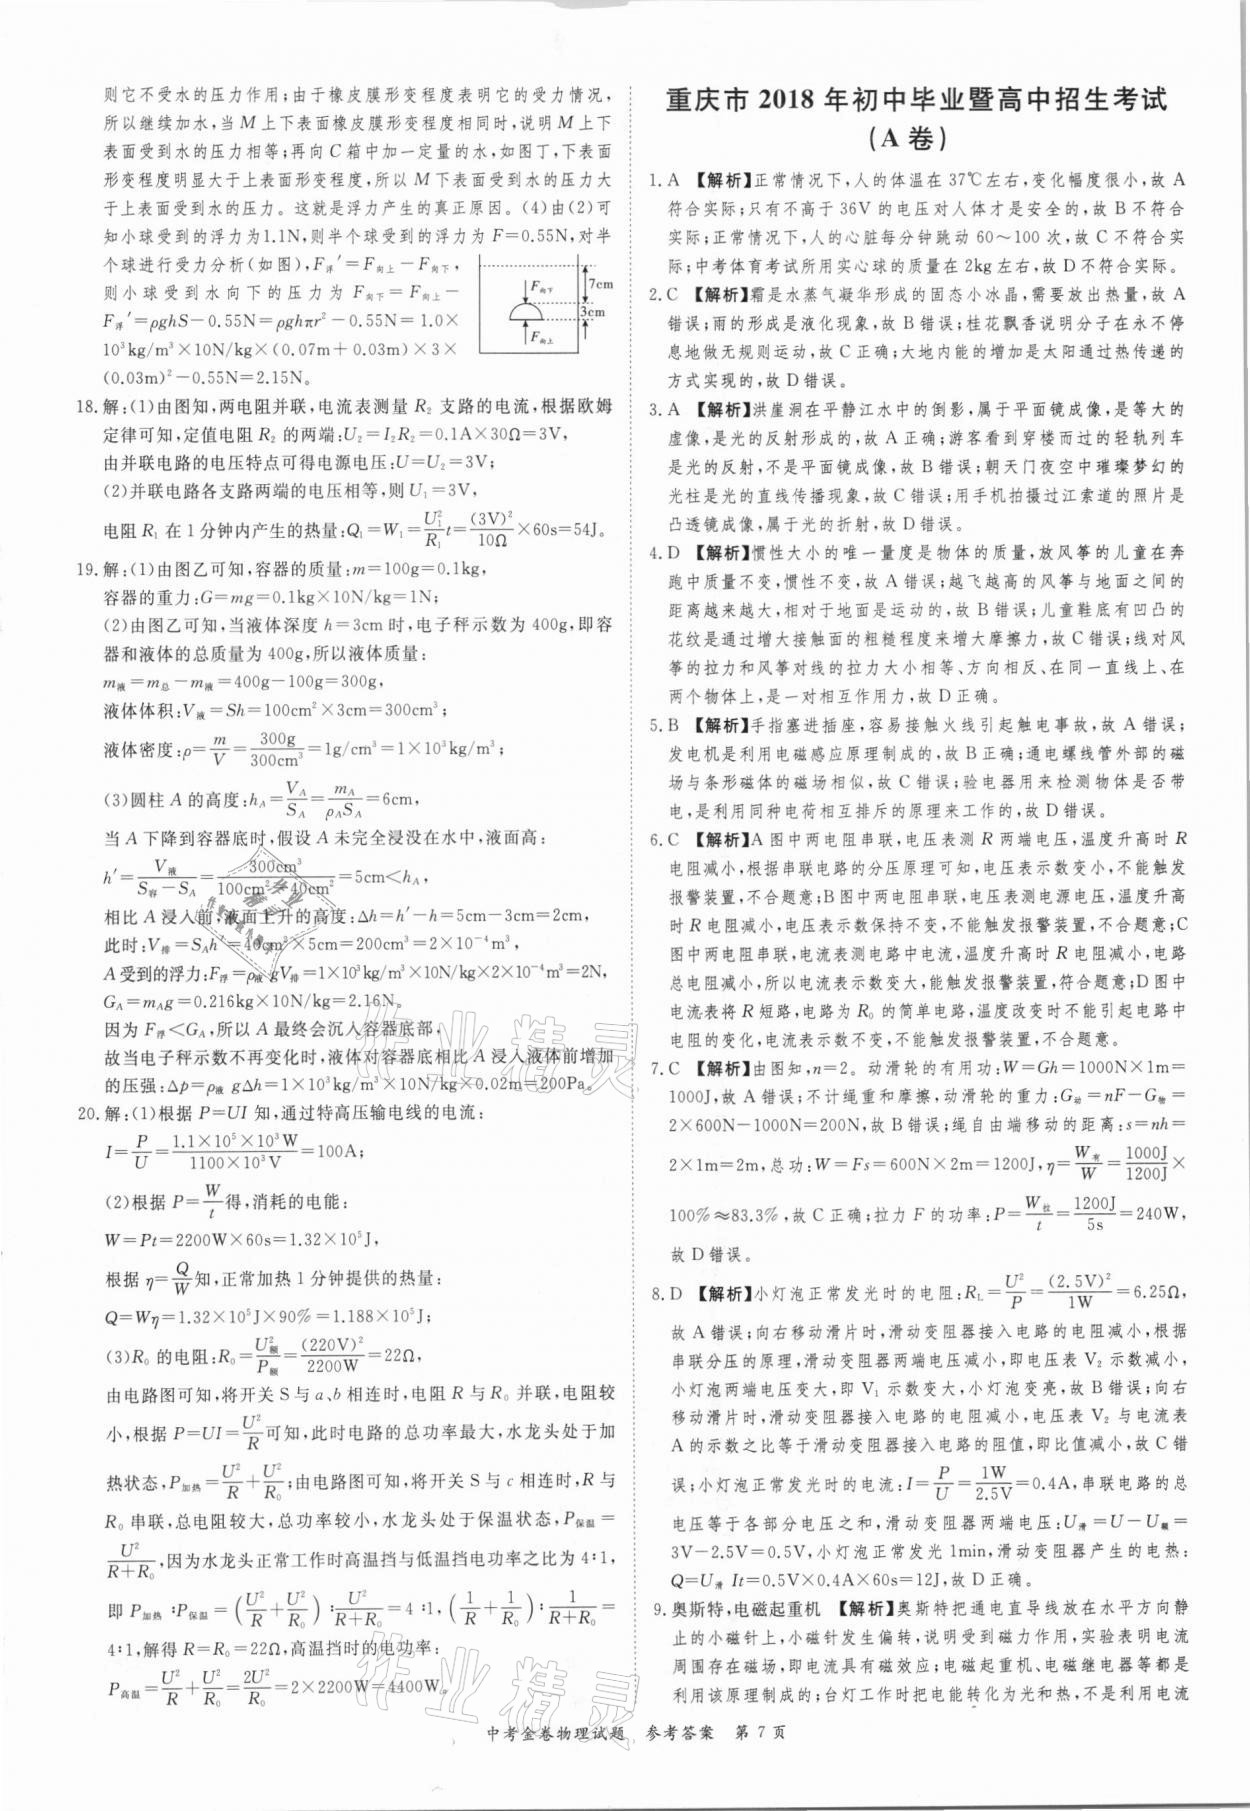 则它不受水的压力作用;由于橡皮膜形变程度表明它的受力情况,
所以继续加水,当M上下表面橡皮膜形变程度相同时,说明M上下
表面受到水的压力相等;再向C箱中加一定量的水,如图丁,下表面
形变程度明显大于上表面形变程度,所以M下表面受到水的压力大
于上表面受到水的压力。这就是浮力产生的真正原因。(4)由(2)可
知小球受到的浮力为1.1N,则半个球受到的浮力为F=0.55N,对半
个球进行受力分析(如图),F浮′=F向上-F向下,
则小球受到水向下的压力为F向下=F向上-
F浮′=ρghS-0.55N=ρghπr²-0.55N=1.0×
10³kg/m³×10N/kg×(0.07m+0.03m)×3×
(0.03m)²-0.55N=2.15N。
F向下
7cm
3cm
F向上
18.解:(1)由图知,两电阻并联,电流表测量R₂支路的电流,根据欧姆
定律可知,定值电阻R₂的两端:U₂=I₂R₂=0.1A×30Ω=3V,
由并联电路的电压特点可得电源电压:U=U₂=3V;
(2)并联电路各支路两端的电压相等,则U₁=3V,
电阻R₁在1分钟内产生的热量:Q₁=W₁=U₁²/R₁t=(3V)²/10Ω×60s=54J。
19.解:(1)由图乙可知,容器的质量:m=100g=0.1kg,
容器的重力:G=mg=0.1kg×10N/kg=1N;
(2)由图乙可知,当液体深度h=3cm时,电子秤示数为400g,即容
器和液体的总质量为400g,所以液体质量:
m液=m总-m液=400g-100g=300g,
液体体积:V液=Sh=100cm²×3cm=300cm³;
液体密度:ρ=m/V=300g/300cm³=1g/cm³=1×10³kg/m³;
(3)圆柱A的高度:hA=VA/SA=mA/ρASA=6cm,
当A下降到容器底时,假设A未完全浸没在水中,液面高:
h′=V液/(S容-SA)=300cm³/(100cm²-40cm²)=5cm<hA,
相比A浸入前,液面上升的高度:Δh=h′-h=5cm-3cm=2cm,
此时:V排=SAh′=40cm²×5cm=200cm³=2×10⁻⁴m³,
A受到的浮力:F浮=ρ液gV排=1×10³kg/m³×10N/kg×2×10⁻⁴m³=2N,
GA=mAg=0.216kg×10N/kg=2.16N。
因为F浮<GA,所以A最终会沉入容器底部,
故当电子秤示数不再变化时,液体对容器底相比A浸入液体前增加
的压强:Δp=ρ液gΔh=1×10³kg/m³×10N/kg×0.02m=200Pa。
20.解:(1)根据P=UI知,通过特高压输电线的电流:
I=P/U=1.1×10⁵×10³W/1100×10³V=100A;
(2)根据P=W/t得,消耗的电能:
W=Pt=2200W×60s=1.32×10⁵J,
根据η=Q/W知,正常加热1分钟提供的热量:
Q=Wη=1.32×10⁵J×90%=1.188×10⁵J;
(3)R₀的电阻:R₀=U额²/P额=(220V)²/2200W=22Ω,
由电路图可知,将开关S与a、b相连时,电阻R与R₀并联,电阻较
小,根据P=UI=U²/R可知,此时电路的总功率最大,水龙头处于加
热状态,P加热=U²/R+U²/R₀;由电路图可知,将开关S与c相连时,R与
R₀串联,总电阻较大,总功率较小,水龙头处于保温状态,P保温=
U²/(R+R₀),因为水龙头正常工作时高温挡与低温挡电功率之比为4∶1,
即P加热∶P保温=(U²/R+U²/R₀)∶U²/(R+R₀)=4∶1,(1/R+1/R₀)∶1/(R+R₀)=
4∶1,解得R=R₀=22Ω,高温挡时的电功率:
P高温=U²/R+U²/R₀=2U²/R₀=2×2200W=4400W。
重庆市2018年初中毕业暨高中招生考试
(A卷)
1.A 【解析】正常情况下,人的体温在37℃左右,变化幅度很小,故A
符合实际;只有不高于36V的电压对人体才是安全的,故B不符合
实际;正常情况下,人的心脏每分钟跳动60~100次,故C不符合实
际;中考体育考试所用实心球的质量在2kg左右,故D不符合实际。
2.C 【解析】霜是水蒸气凝华形成的固态小冰晶,需要放出热量,故A
错误;雨的形成是液化现象,故B错误;桂花飘香说明分子在永不停
息地做无规则运动,故C正确;大地内能的增加是太阳通过热传递的
方式实现的,故D错误。
3.A 【解析】洪崖洞在平静江水中的倒影,属于平面镜成像,是等大的
虚像,是光的反射形成的,故A正确;游客看到穿楼而过的轻轨列车
是光的反射,不是平面镜成像,故B错误;朝天门夜空中璀璨梦幻的
光柱是光的直线传播现象,故C错误;用手机拍摄过江索道的照片是
凸透镜成像,属于光的折射,故D错误。
4.D 【解析】惯性大小的唯一量度是物体的质量,放风筝的儿童在奔
跑中质量不变,惯性不变,故A错误;越飞越高的风筝与地面之间的
距离越来越大,相对于地面是运动的,故B错误;儿童鞋底有凹凸的
花纹是通过增大接触面的粗糙程度来增大摩擦力,故C错误;线对风
筝的拉力和风筝对线的拉力大小相等、方向相反、在同一直线上、在
两个物体上,是一对相互作用力,故D正确。
5.B 【解析】手指塞进插座,容易接触火线引起触电事故,故A错误;
发电机是利用电磁感应原理制成的,故B正确;通电螺线管外部的磁
场与条形磁体的磁场相似,故C错误;验电器用来检测物体是否带
电,是利用同种电荷相互排斥的原理来工作的,故D错误。
6.C 【解析】A图中两电阻串联,电压表测R两端电压,温度升高时R
电阻减小,根据串联电路的分压原理可知,电压表示数变小,不能触发
报警装置,不合题意;B图中两电阻串联,电压表测电源电压,温度升高
时R电阻减小,电压表示数保持不变,不能触发报警装置,不合题意;C
图中两电阻串联,电流表测电路中电流,温度升高时R电阻减小,电路
总电阻减小,所以电流表示数变大,能触发报警装置,符合题意;D图中
电流表将R短路,电路为R₀的简单电路,温度改变时不能引起电路中
电阻的变化,电流表示数不变,不能触发报警装置,不合题意。
7.C 【解析】由图知,n=2。动滑轮的有用功:W=Gh=1000N×1m=
1000J,故A错误;不计绳重和摩擦,动滑轮的重力:G动=nF-G物=
2×600N-1000N=200N,故B错误;绳自由端移动的距离:s=nh=
2×1m=2m,总功:W=Fs=600N×2m=1200J,η=W有/W=1000J/1200J×
100%≈83.3%,故C正确;拉力F的功率:P=W拉/t=1200J/5s=240W,
故D错误。
8.D 【解析】小灯泡正常发光时的电阻:RL=U²/P=(2.5V)²/1W=6.25Ω,
故A错误;向右移动滑片时,滑动变阻器接入电路的电阻减小,根据
串联分压的原理,滑动变阻器两端电压减小,即电压表V₂示数减小,
小灯泡两端电压变大,即V₁示数变大,小灯泡变亮,故B错误;向右
移动滑片时,滑动变阻器接入电路的电阻减小,电压表V₂与电流表
A的示数之比等于滑动变阻器接入电路的阻值,即比值减小,故C错
误;小灯泡正常发光时的电流:I=P/U=1W/2.5V=0.4A,串联电路的总
电压等于各部分电压之和,滑动变阻器两端电压:U滑=U-U额=
3V-2.5V=0.5V,小灯泡正常发光1min,滑动变阻器产生的电热:
Q=U滑It=0.5V×0.4A×60s=12J,故D正确。
9.奥斯特,电磁起重机 【解析】奥斯特把通电直导线放在水平方向静
止的小磁针上,小磁针发生偏转,说明受到磁力作用,实验表明电流
周围存在磁场,即电流具有磁效应;电磁起重机、电磁继电器等都是
利用该原理制成的;台灯工作时把电能转化为光和热,不是利用电流
中考金卷物理试题 参考答案 第7页
作业精灵
作业精灵